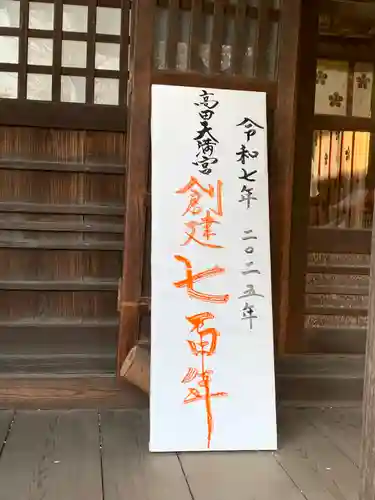 令和七年 二〇二五年
高田天満宮
創建七百年